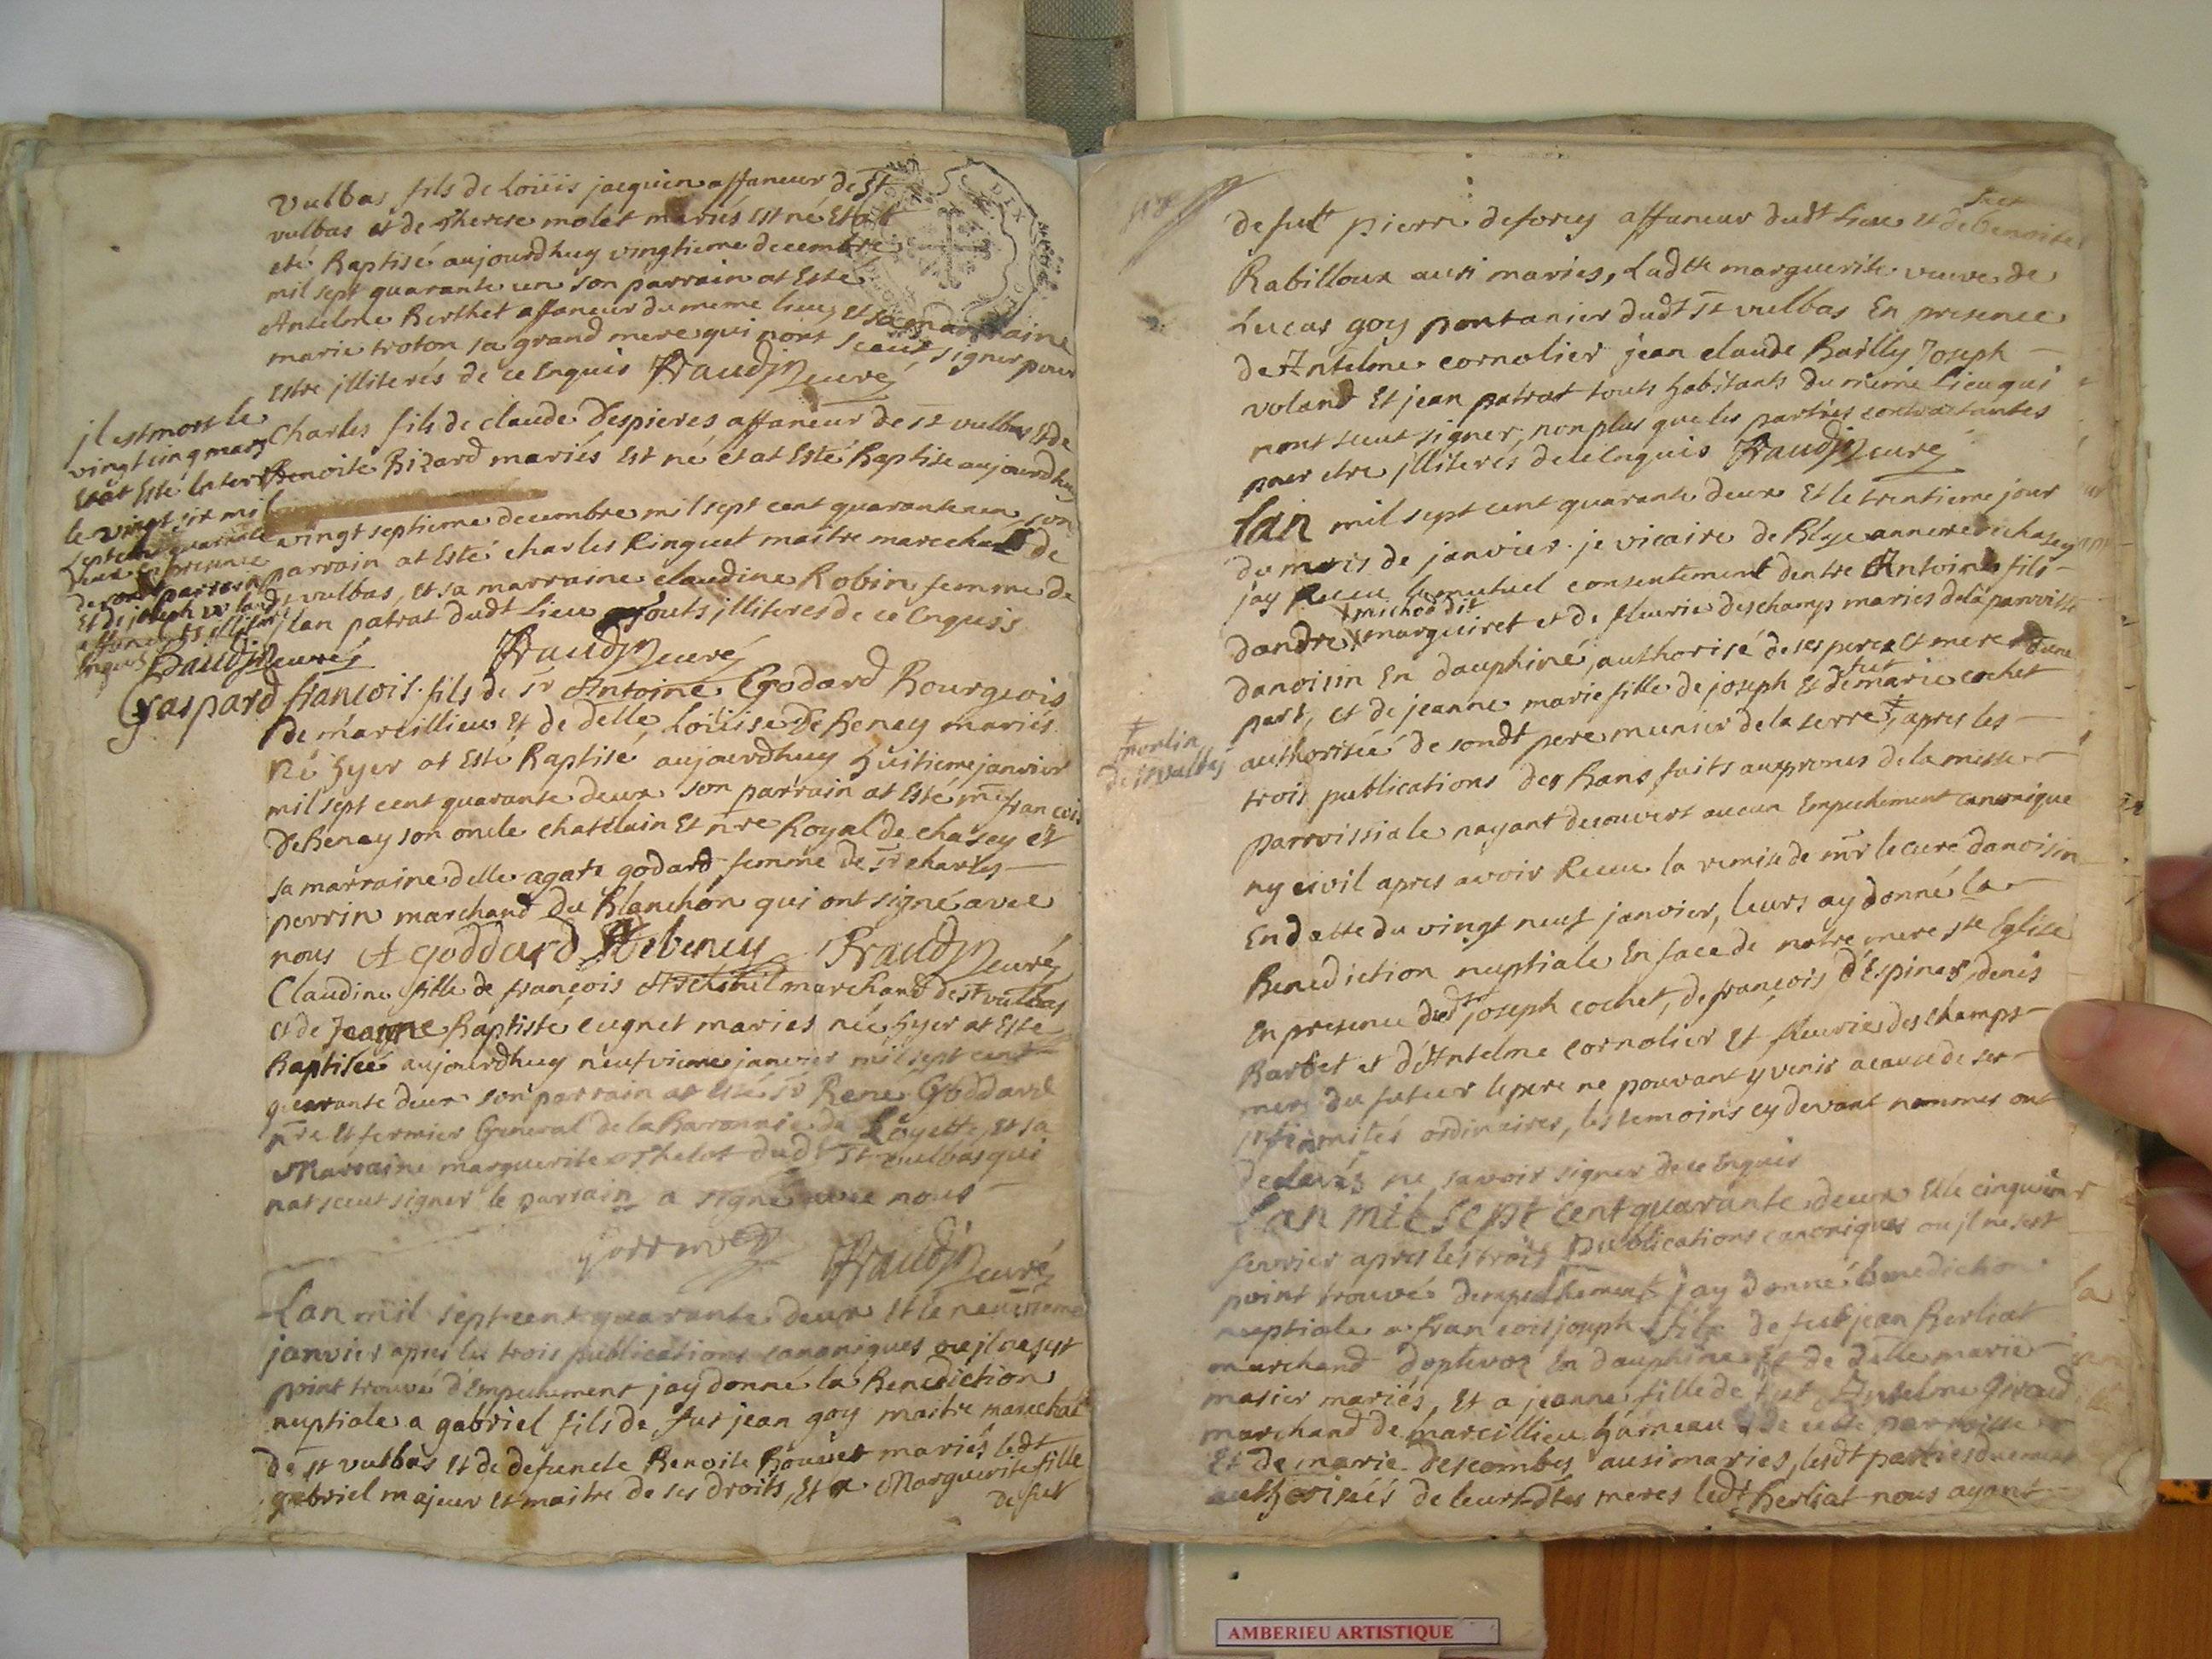 Vulbas fils de Loüis jacquin affaneur de St
vulbas et de Therese molet mariés est né et att
eté Baptisé aujourdhuy vingtieme decembre
mil sept quarante un son parrain at Esté
Antelme Berthet affaneur du meme lieu, et sa marraine
marie troton sa grand mere qui nont sceut signer pour
Estre jlliterés de ce Enquis Baudin curé
jl est mort le
vingt cinq mars
Et at Esté Enterré
le vingt six mil
sept cent quarante
deux en presence
de son parrain
Et de joseph voland
affaneurs jlliterés
Enquis Baudin curé
Charles fils de claude Despieres affaneur de st vulbas Et de
Benoite Bizard mariés Est né et at Esté Baptise aujourdhuy
vingt septieme decembre mil sept cent quarante un, son
parrain at Esté charles Ringuet maître marechal de
st vulbas, et sa marraine claudine Robin femme de
jlan patrat dudt Lieu touts jlliteres de ce Enquis
Baudin curé
Gaspard francois fils de sr Antoine Godard Bourgeois
de marcillieu et de delle Loüise DeBeney mariés
Né hyer at Esté Baptisé aujourdhuy huitieme janvier
mil sept cent quarante deux son parrain at Esté me francois
DeBeney son oncle chatelain Et nre Royal de chasey et
sa marraine delle agate godard femme de sr charles
perrin marchand du Blanchon qui ont signé avec
nous A goddard Debeney Baudin curé
Claudine fille de françois marchand de st vulbas
et de Jeanne Baptiste cugnet maries née hyer at Este
Baptisée aujourdhuy neufvieme janvier mil sept cent
quarante deux son parrain at Esté sr René Goddard
nre Et fermier General de la Baronnie de Loyette, et sa
Marraine marguerite Thelot dudt st vulbas qui
nat sceut signer le parrain a signé avec nous
Baudin curé
Lan mil sept cent quarante deux et le neuvieme
janvier apres les trois publications canoniques ou jl ne sest
point trouvé d'Empechement jay donné la Benediction
nuptiale a gabriel fils de fut jean goy maitre marechal
de st vulbas Et de defuncte Benoite Bouvet mariés ledt
gabriel majeur et maitre de ses droits, Et a Marguerite fille
de fut
de fut pierre deforey affaneur dudt Lieu et de fut benoite
Rabilloux ausi maries, Ladtte marguerite veuve de
Lucas goy pontanier dudt st vulbas En presence
de Antelme cornolier jean claude Bailly Joseph
voland Et jean patrat touts habitants du même lieu qui
nont sceut signer, non plus que les parties contractantes
pour etre jlliterés de ce Enquis Baudin curé
Lan mil sept cent quarante deux Et le trentieme jour
du mois de janvier je vicaire de Blye annexe de chasey
jay Receu le mutuel consentement dentre Antoine fils
michod dit
dandre marguiret et de fleurie deschamps maries de la parroisse
danoisin En dauphiné, authorisé de ses pere Et mere dune
part, et de jeanne marie fille de joseph Et de fut marie cochet
authorisée de sondt pere munier de la serre, apres les
morlin
de st vulbas
trois publications des Bans faits aux prones de la messe
parroissiale nayant decouvert aucun Empechement canonique
ny civil apres avoir Receu la remise de mr le curé danoisin
En datte du vingt neuf janvier, leurs ay donné la
Benediction nuptiale En face de notre mere ste Eglise
En presence dudt joseph cochet, de françois d'Espines, denis
Barbet et d'Antelme cornolier Et fleurie des champs
mere du futeur le pere ne pouvant y venir a cause de ses
jnfirmités ordinaires, les temoins cy devant nommes ont
declarés ne savoir signer de ce Enquis
Lan mil sept cent quarante deux Et le cinquieme
fevrier apres les trois publications canoniques ou jl ne sest
point trouvé dempechement jay donné la benediction
nuptiale a francois joseph fils de fut jean Berliat
marchand doptevoz En dauphine Et de delle marie
masier mariés, Et a jeanne fille de fut Antelme Giraud
marchand de marcillieu hameau de cette parroisse
Et de marie descombes ausi maries, lesdt parties duement
authorisés de leursdtes meres ledt Berliat nous ayant
AMBERIEU ARTISTIQUE